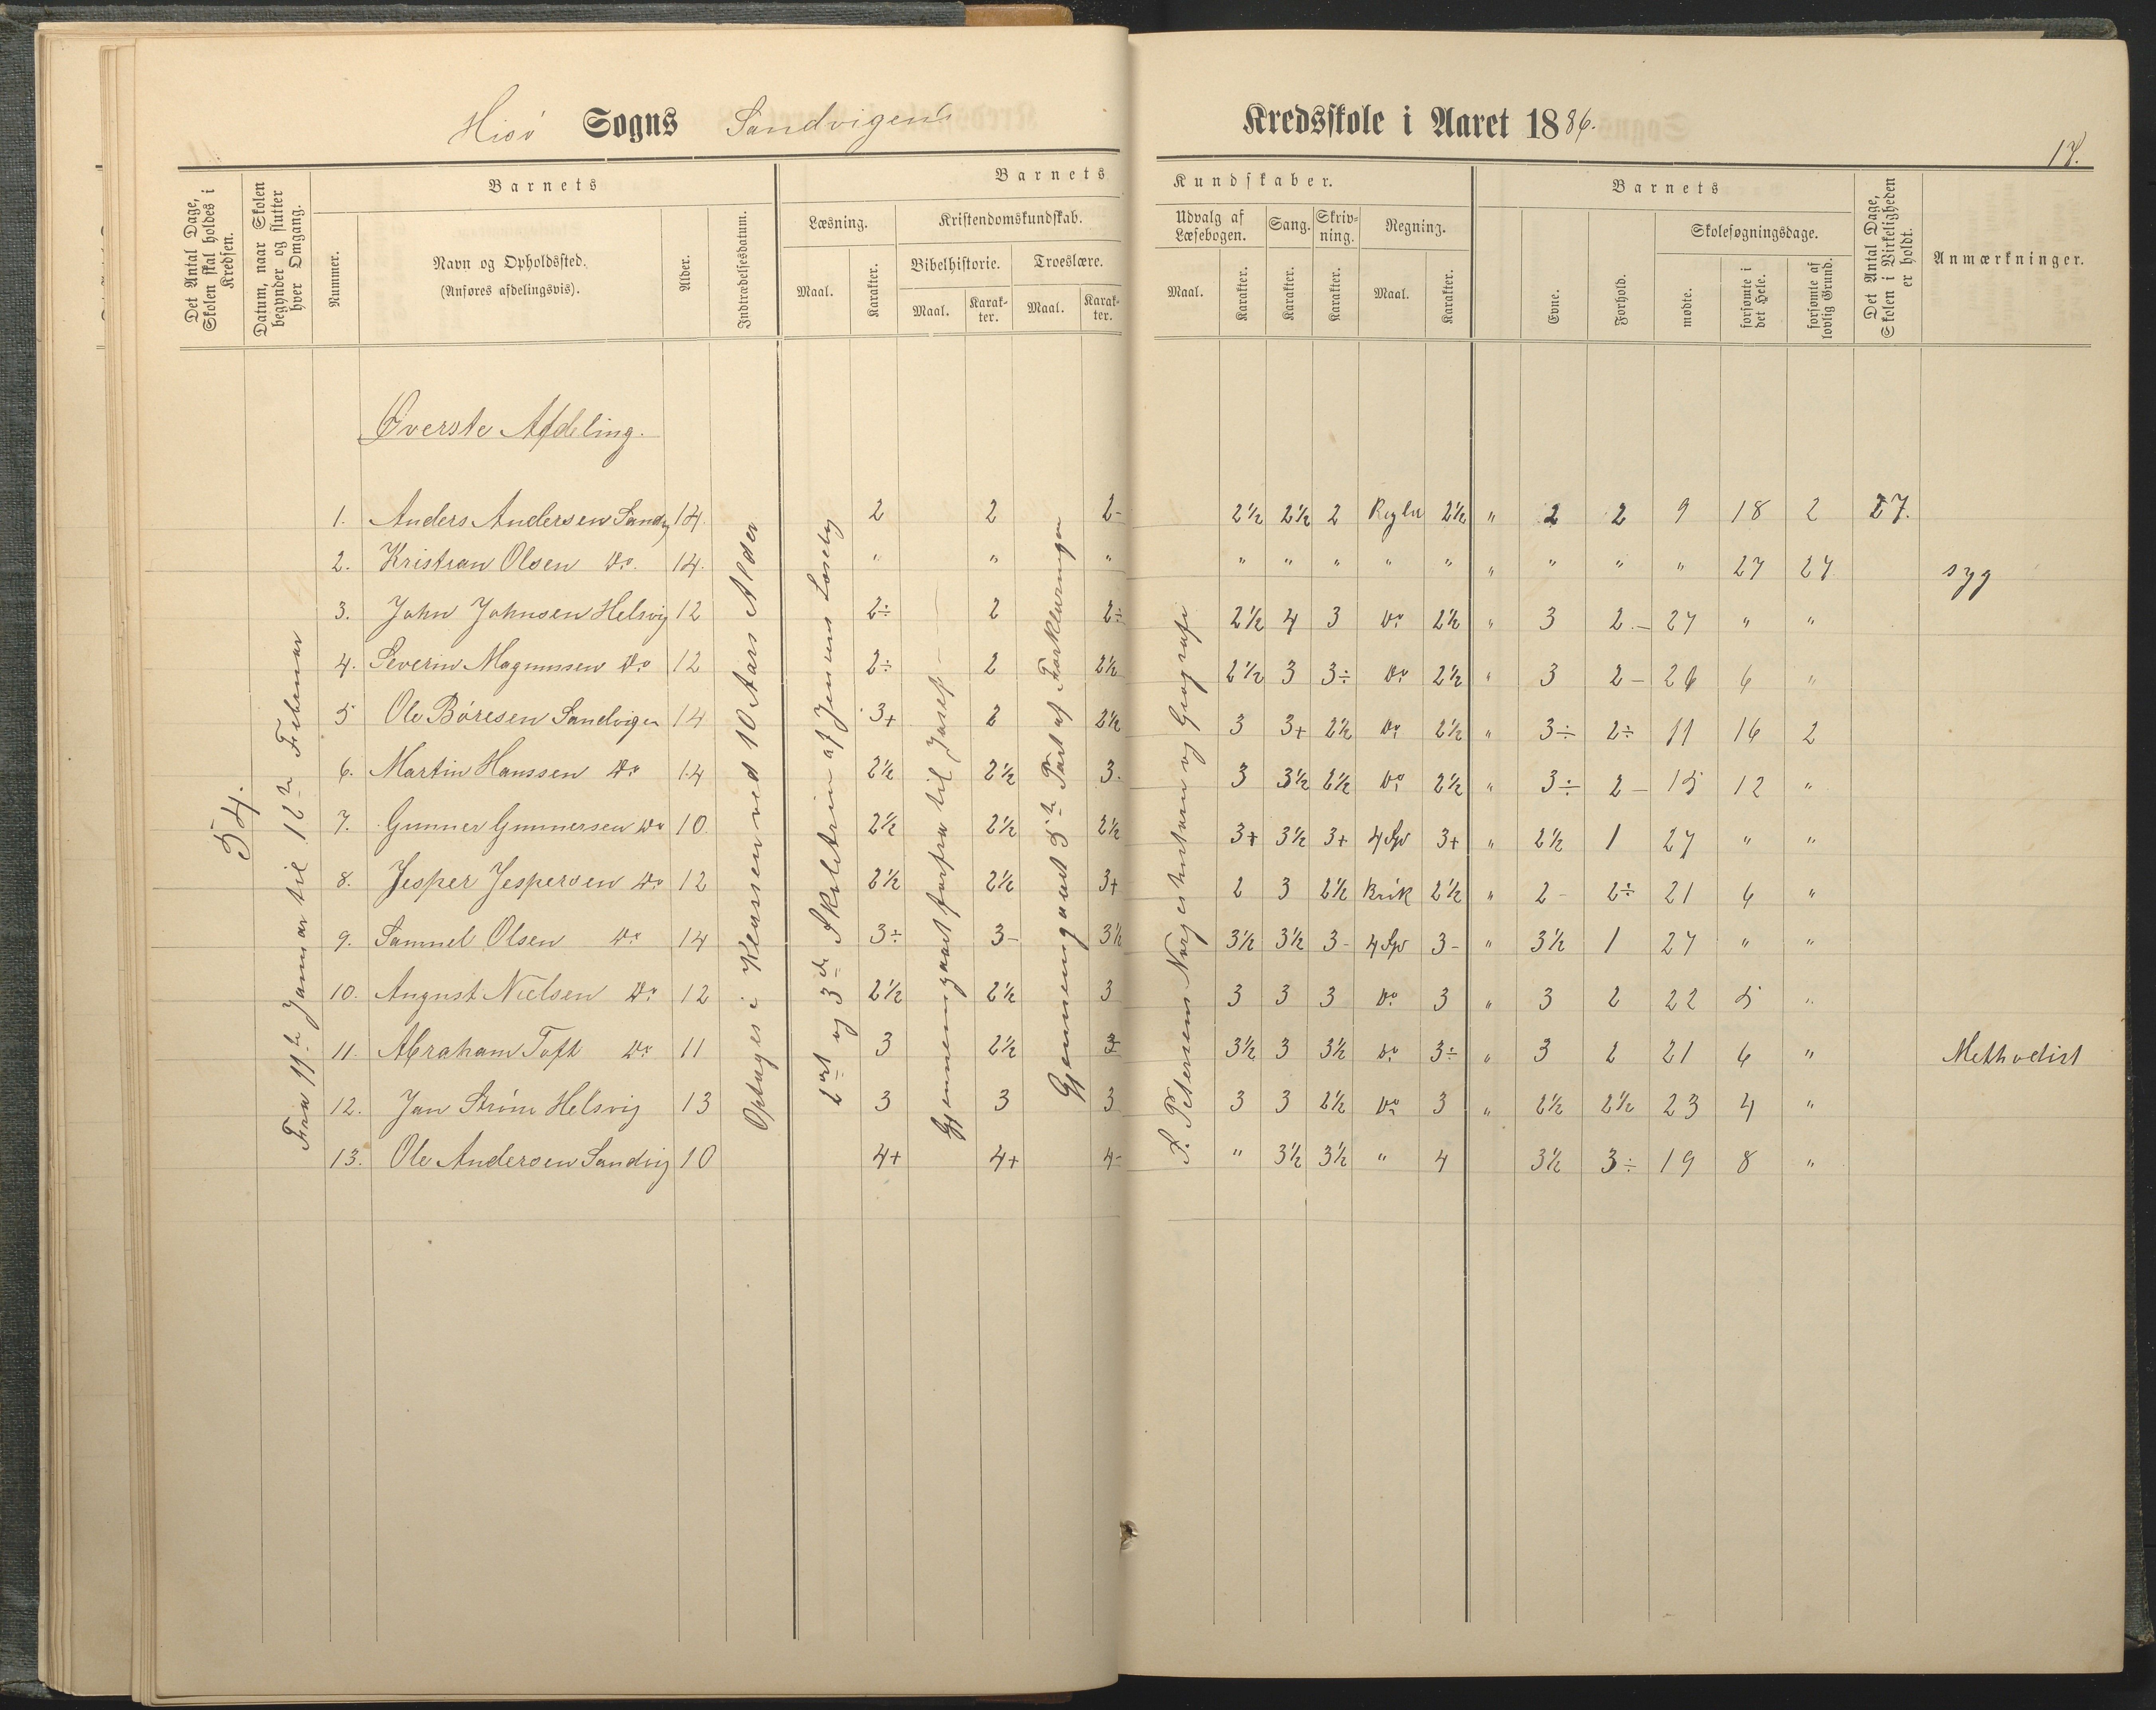 Hisö Sogns Sandvigens Kredsskole i Aaret 1886.
Det Antal Dage, Skolen skal holdes i Kredsen.
Datum, naar Skolen begynder og slutter hver Omgang.
Barnets
Nummer.
Navn og Opholdssted.
(Anføres afdelingsvis).
Alder.
Indtrædelsesdatum.
Barnets Kundskaber.
Læsning.
Maal.
Karakter.
Kristendomskundskab.
Bibelhistorie.
Maal.
Karakter.
Troeslære.
Maal.
Karakter.
Udvalg af Læsebogen.
Maal.
Karakter.
Sang.
Karakter.
Skrivning.
Karakter.
Regning.
Maal.
Karakter.
Barnets
Evne.
Forhold.
Skolesøgningsdage.
mødte.
forsømte i det Hele.
forsømte af lovlig Grund.
Det Antal Dage, Skolen i Virkeligheden er holdt.
Anmærkninger.
54.
Fra 11te Januar til 12te Februar
Optages i Klassen ved 10 Aars Alder
2det og 3de Skiletrin af Jensens Læsebog
Gjennemgaaet forfra til Josef
Gjennemgaaet 3die Part af Forklaringen
S. Petersens Norgeshistorie og Geografi
Øverste Afdeling.
1. Anders Andersen Sandv 14. 2 2 2- 2½ 2½ 2 Regler 2½ " 2 2 9 18 2 27.
2. Kristian Olsen Do. 14. " " " " " " " " " " " " 27 27 syg
3. John Johnsen Helsvig 12 2÷ 2 2÷ 2½ 4 3 Do 2½ " 3 2- 27 " "
4. Severin Magnussen Do 12 2÷ 2 2½ 2½ 3 3÷ Do 2½ " 3 2- 26 6 "
5 Ole Börresen Sandvigen 14 3+ 2 2½ 3 3+ 2½ Do 2½ " 3÷ 2÷ 11 16 2
6. Martin Hanssen Do 14 2½ 2½ 3- 3 3½ 2½ Do 2½ " 3÷ 2- 15 12 "
7. Gunner Gunnersen Do 10. 2½ 2½ 2½ 3+ 3½ 3+ 4 Sp 3+ " 2½ 1 27 " "
8. Jesper Jespersen Do 12 2½ 2½ 3+ 2 3 2½ Brök 2½ " 2- 2÷ 21 6 "
9. Samuel Olsen Do 14 3÷ 3- 3½ 3½ 3½ 3- 4 Sp 3- " 3½ 1 27 " "
10. August Nielsen Do 12 2½ 2½ 3 3 3 3 Do 3 " 3 2 22 5 "
11. Abraham Toft Do 11 3 2½ 3 3½ 3 3½ Do 3÷ " 3 2 21 6 " Methodist
12. Jan Ström Helsvig 13 3 3 3 3 3 2½ Do 3 " 2½ 2½ 23 4 "
13. Ole Andersen Sandvig 10 4+ 4+ 4- " 3½ 3½ " 4 3½ 3÷ 19 8 "